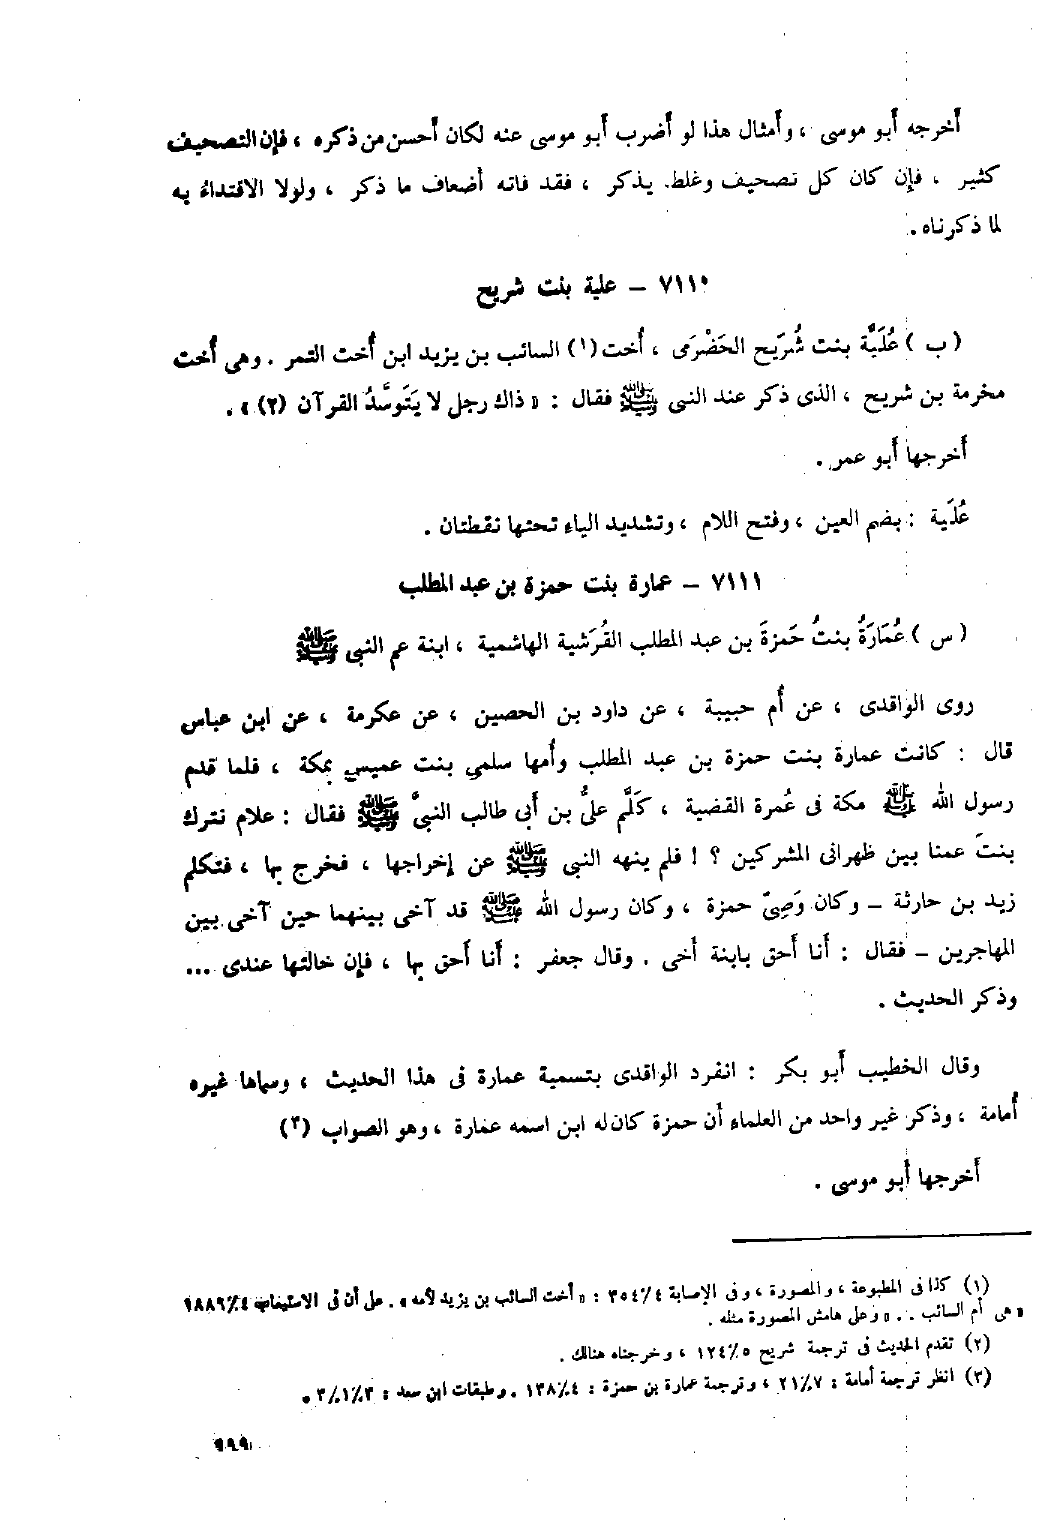 أخرجه أبو موسى ، وأمثال هذا لو أضرب أبو موسى عنه لكان أحسن من ذكره ، فإن التصحيف
كثير ، فإن كان كل تصحيف وغلط يذكر ، فقد فاته أضعاف ما ذكر ، ولولا الاقتداءُ به
لما ذكرناه .
٧١١٠ – علية بنت شريح
( ب ) عُلَيَّة بنت شُرَيح الحَضْرَمى ، أُخت (١) السائب بن يزيد ابن أُخت النمر . وهى أُخت
مخرمة بن شريح ، الذى ذكر عند النبى ﷺ فقال : « ذاك رجل لا يَتَوسَّدُ القرآن (٢) » .
أخرجها أبو عمر .
عُلَية : بضم العين ، وفتح اللام ، وتشديد الياء تحتها نقطتان .
٧١١١ – عمارة بنت حمزة بن عبد المطلب
( س ) عُمَارَةُ بنتُ حَمزةَ بن عبد المطلب القُرَشية الهاشمية ، ابنة عم النبى ﷺ
روى الواقدى ، عن أُم حبيبة ، عن داود بن الحصين ، عن عكرمة ، عن ابن عباس
قال : كانت عمارة بنت حمزة بن عبد المطلب وأُمها سلمي بنت عميس بمكة ، فلما قدم
رسول الله ﷺ مكة فى عُمرة القضية ، كَلَّم علىُّ بن أَبى طالب النبىَّ ﷺ فقال : علام نترك
بنتَ عمنا بين ظهرانى المشركين ؟ ! فلم ينهه النبى ﷺ عن إخراجها ، فخرج بها ، فتكلم
زيد بن حارثة – وكان وَصِىّ حمزة ، وكان رسول الله ﷺ قد آخى بينهما حين آخى بين
المهاجرين – فقال : أنا أحق بابنة أخى . وقال جعفر : أنا أحق بها ، فإن خالتها عندى ...
وذكر الحديث .
وقال الخطيب أبو بكر : انفرد الواقدى بتسمية عمارة فى هذا الحديث ، وسماها غيره
أُمامة ، وذكر غير واحد من العلماء أن حمزة كان له ابن اسمه عمارة ، وهو الصواب (٣)
أخرجها أبو موسى .
(١) كذا فى المطبوعة ، والمصورة ، وفى الإصابة ٤٪٣٥٤ : « أخت السائب بن يزيد لأمه » . على أن فى الاستيعاب ٤٪١٨٨٦
« هى أم السائب . . » وعلى هامش المصورة مثله .
(٢) تقدم الحديث فى ترجمة شريح ٥٪١٢٤ ، وخرجناه هنالك .
(٣) انظر ترجمة أمامة : ٧٪٢١ ، وترجمة عمارة بن حمزة : ٤٪١٣٨ . وطبقات ابن سعد : ٣٪١٪٣ .
١٩٩